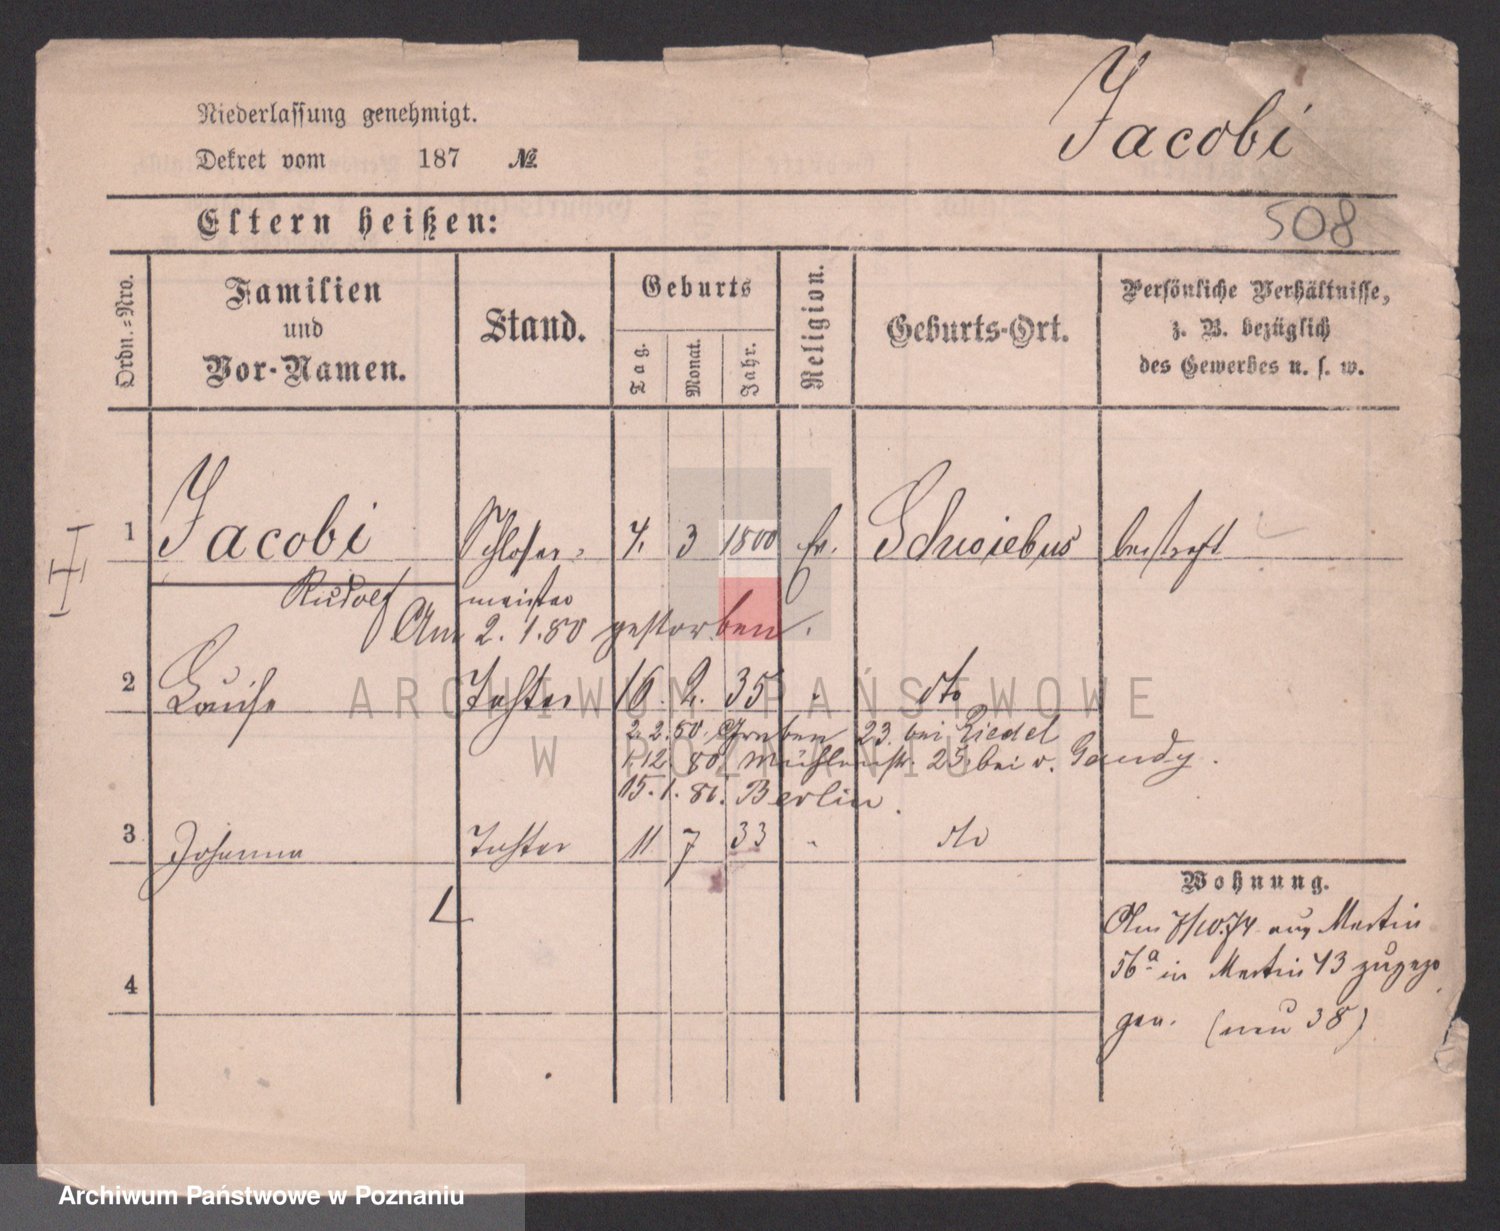 Niederlassung genehmigt.
Dekret vom 187 №.
Jacobi
Eltern heißen:
508
Ordn.=Nro.
Familien
und
Vor-Namen.
Stand.
Geburts
Tag.
Monat.
Jahr.
Religion.
Geburts-Ort.
Persönliche Verhältnisse,
z. B. bezüglich
des Gewerbes u. s. w.
1 Jacobi Schlosser= 7. 3 1800 Ev. Schwiebus bestraft
Rudolf meister
Am 2. 1. 80 gestorben.
2 Louise Tochter 16. 2. 35 " dto
2. 2. 80. Graben 23. bei Riedel
1. 12. 80. Mühlenstr. 23. bei v. Gandy.
15. 1. 81. Berlin.
3 Johanna Tochter 11 7 33 " dto
4
Wohnung.
Am 7/10.74 aus Martin
56a in Martin 43 zugezo
gen. (neu 38)
ARCHIWUM PAŃSTWOWE
W POZNANIU
Archiwum Państwowe w Poznaniu